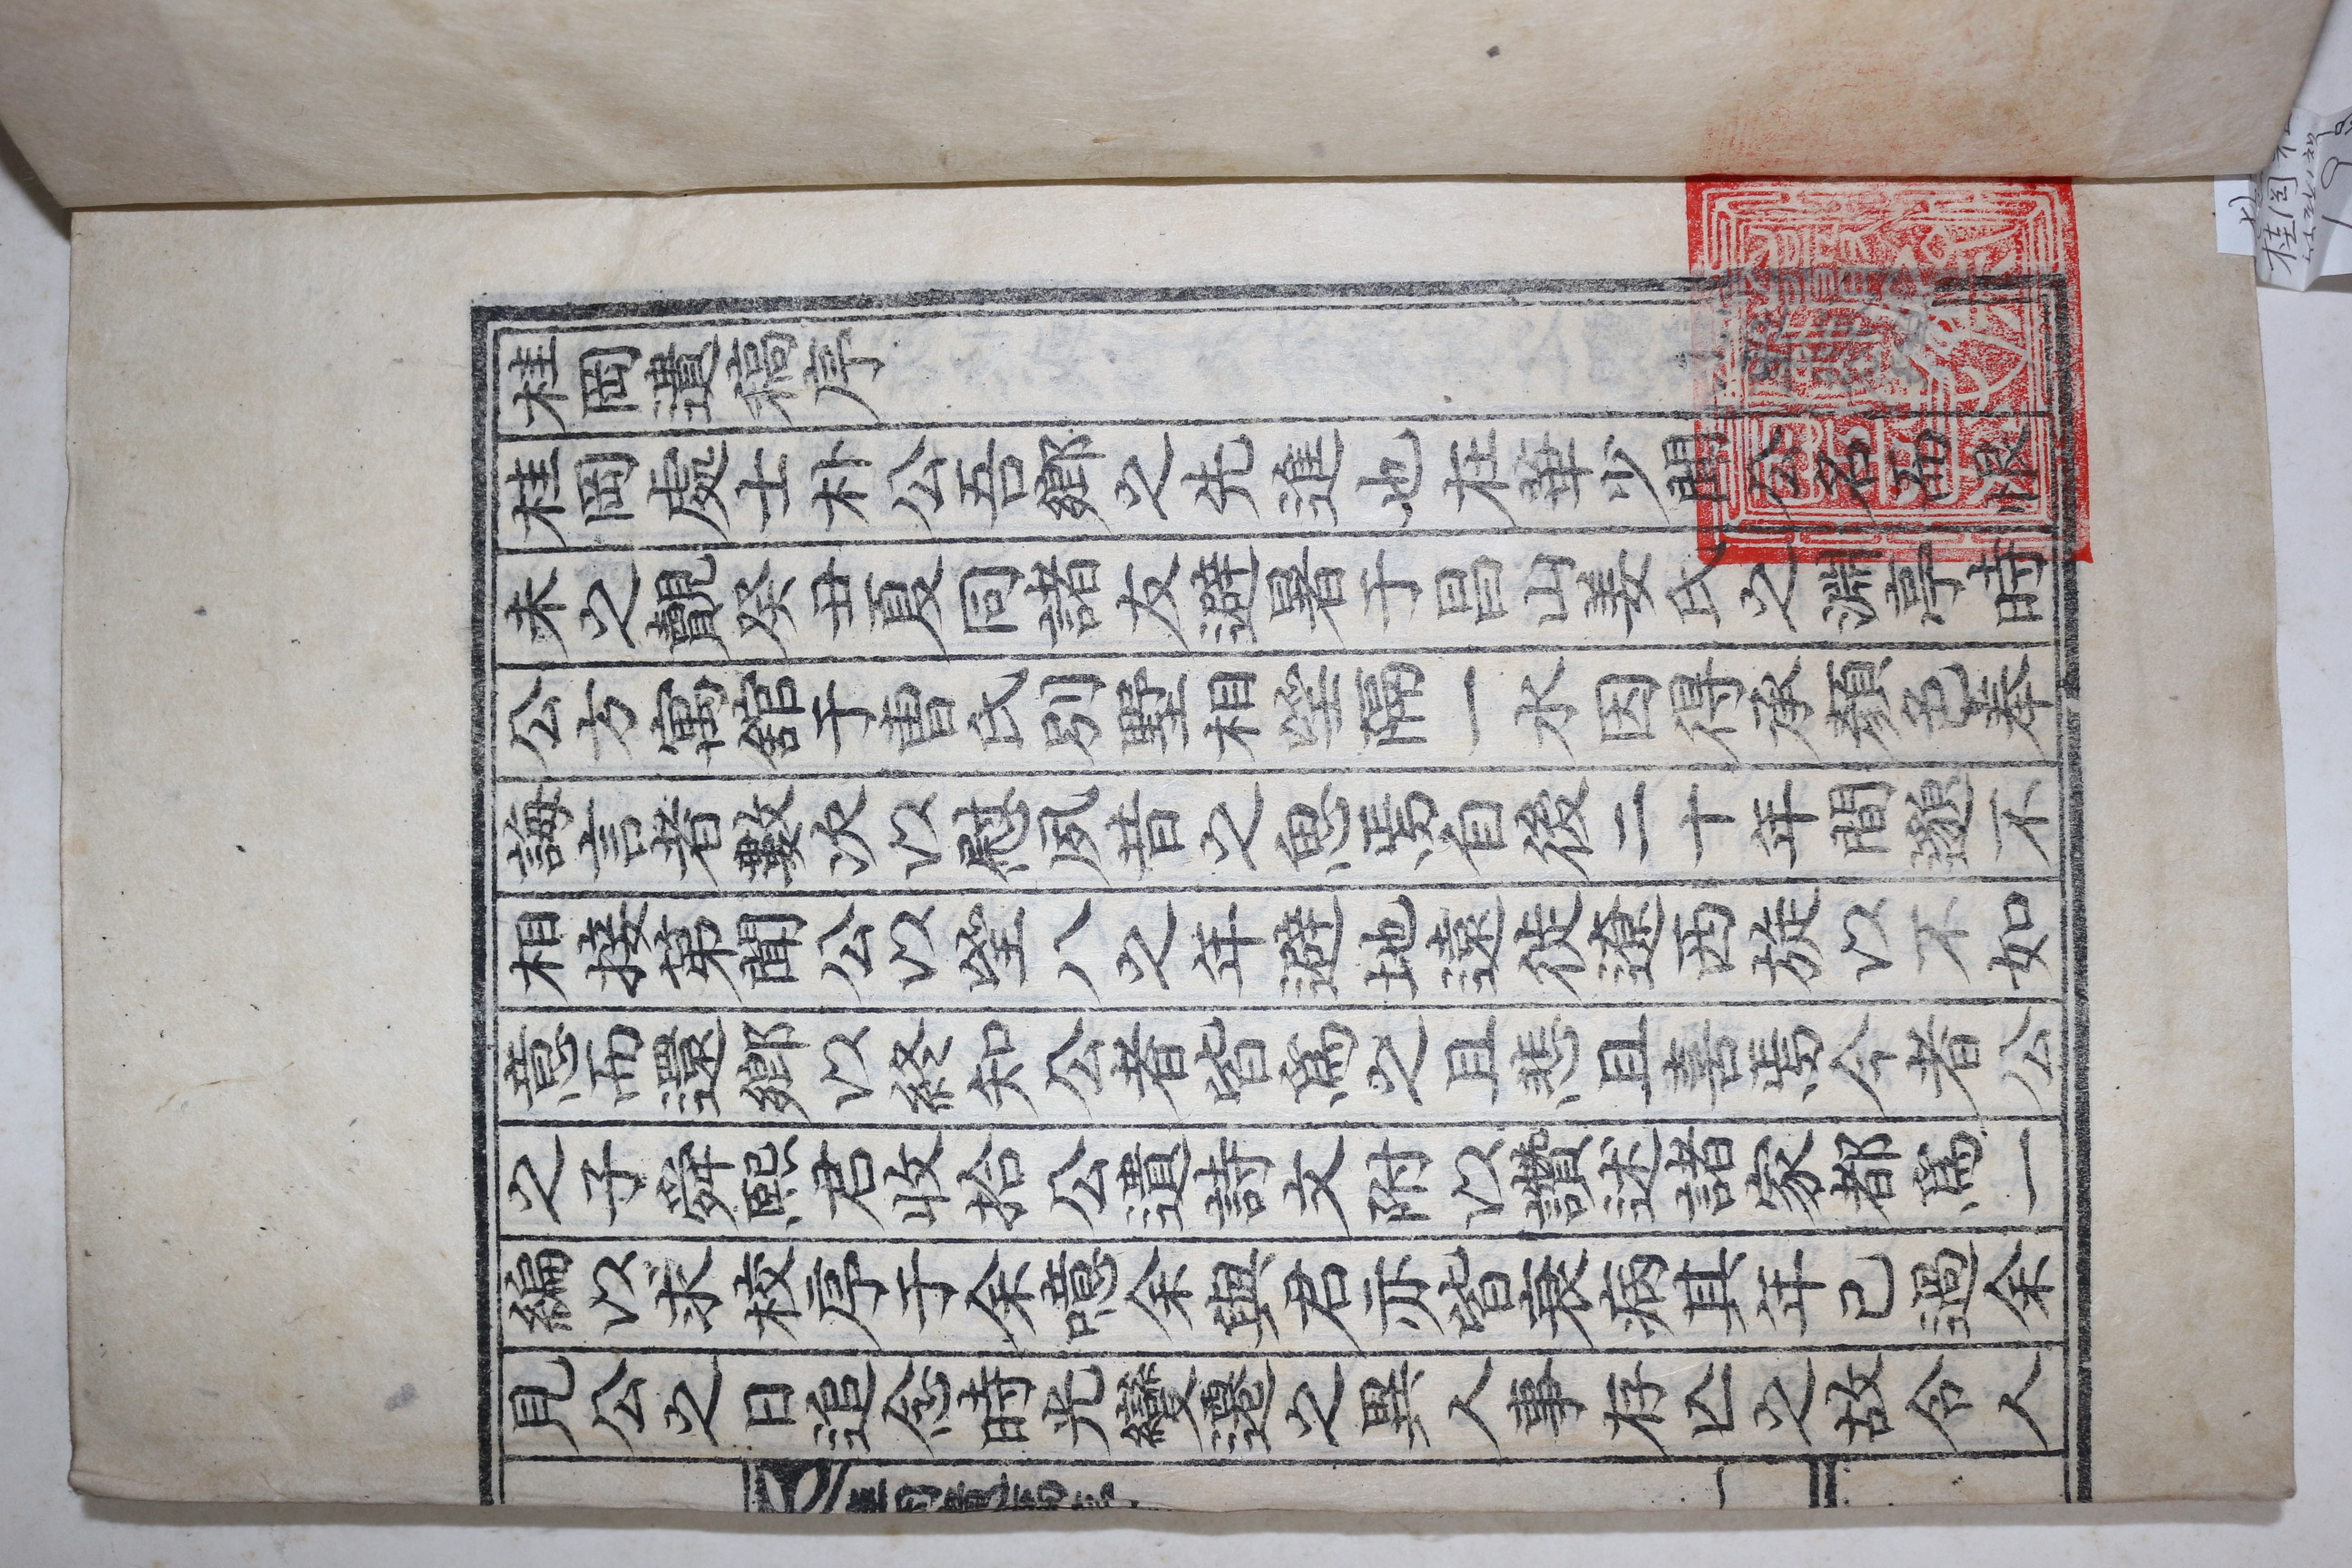 桂岡遺稿序
桂岡處士朴公吾鄉之先進也在華少聞公名而恨
未之覿癸丑夏同諸友避暑于昌山姜氏之淵亭時
公方寓舘于曺氏別墅相望隔一水因得承顏色奉
誨言者數次以慰夙昔之思焉自後二十年間邈不
相接第聞公以望八之年避地遠徙遼西旋以不如
意而還鄉以終知公者皆爲之且悲且喜焉今者公
之子舜熙君收拾公遺詩文附以讚述諸家都爲一
編以求校序于余噫余與君亦皆衰病其年已過余
見公之日追念時光變遷之異人事存亾之故令人
一
桂岡